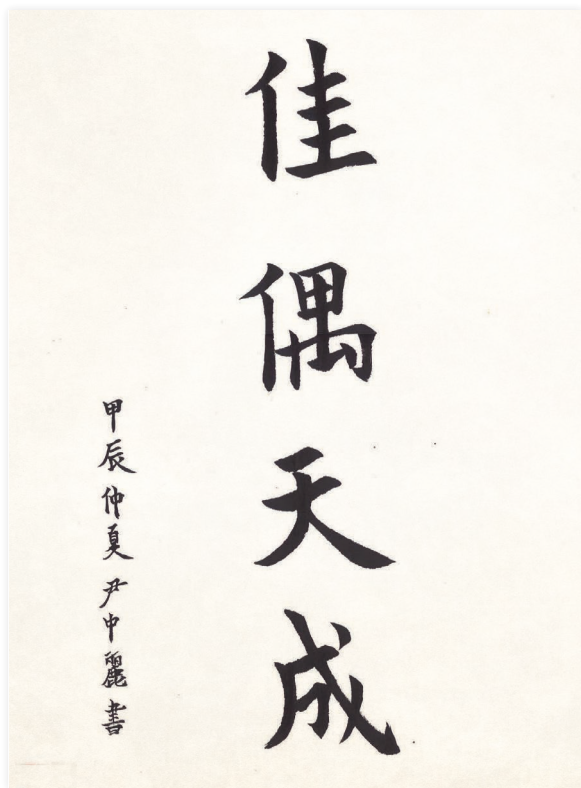 佳偶天成
甲辰仲夏尹中麗書